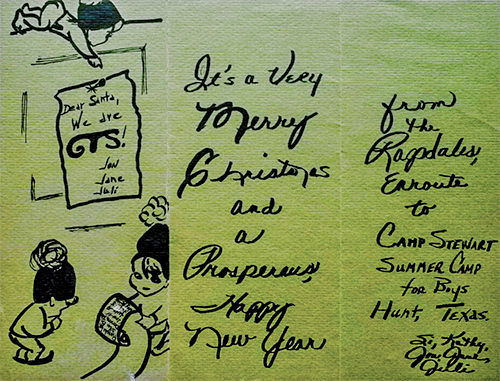 Dear Santa,
We are
OTS!
Jane
Juli
It's a Very
Merry
Christmas
and
a
Prosperous,
Happy
New Year
from
the
Ragsdales,
Enroute
to
CAMP STEWART
SUMMER CAMP
FOR BOYS
HUNT, TEXAS.
Si, Kathy,